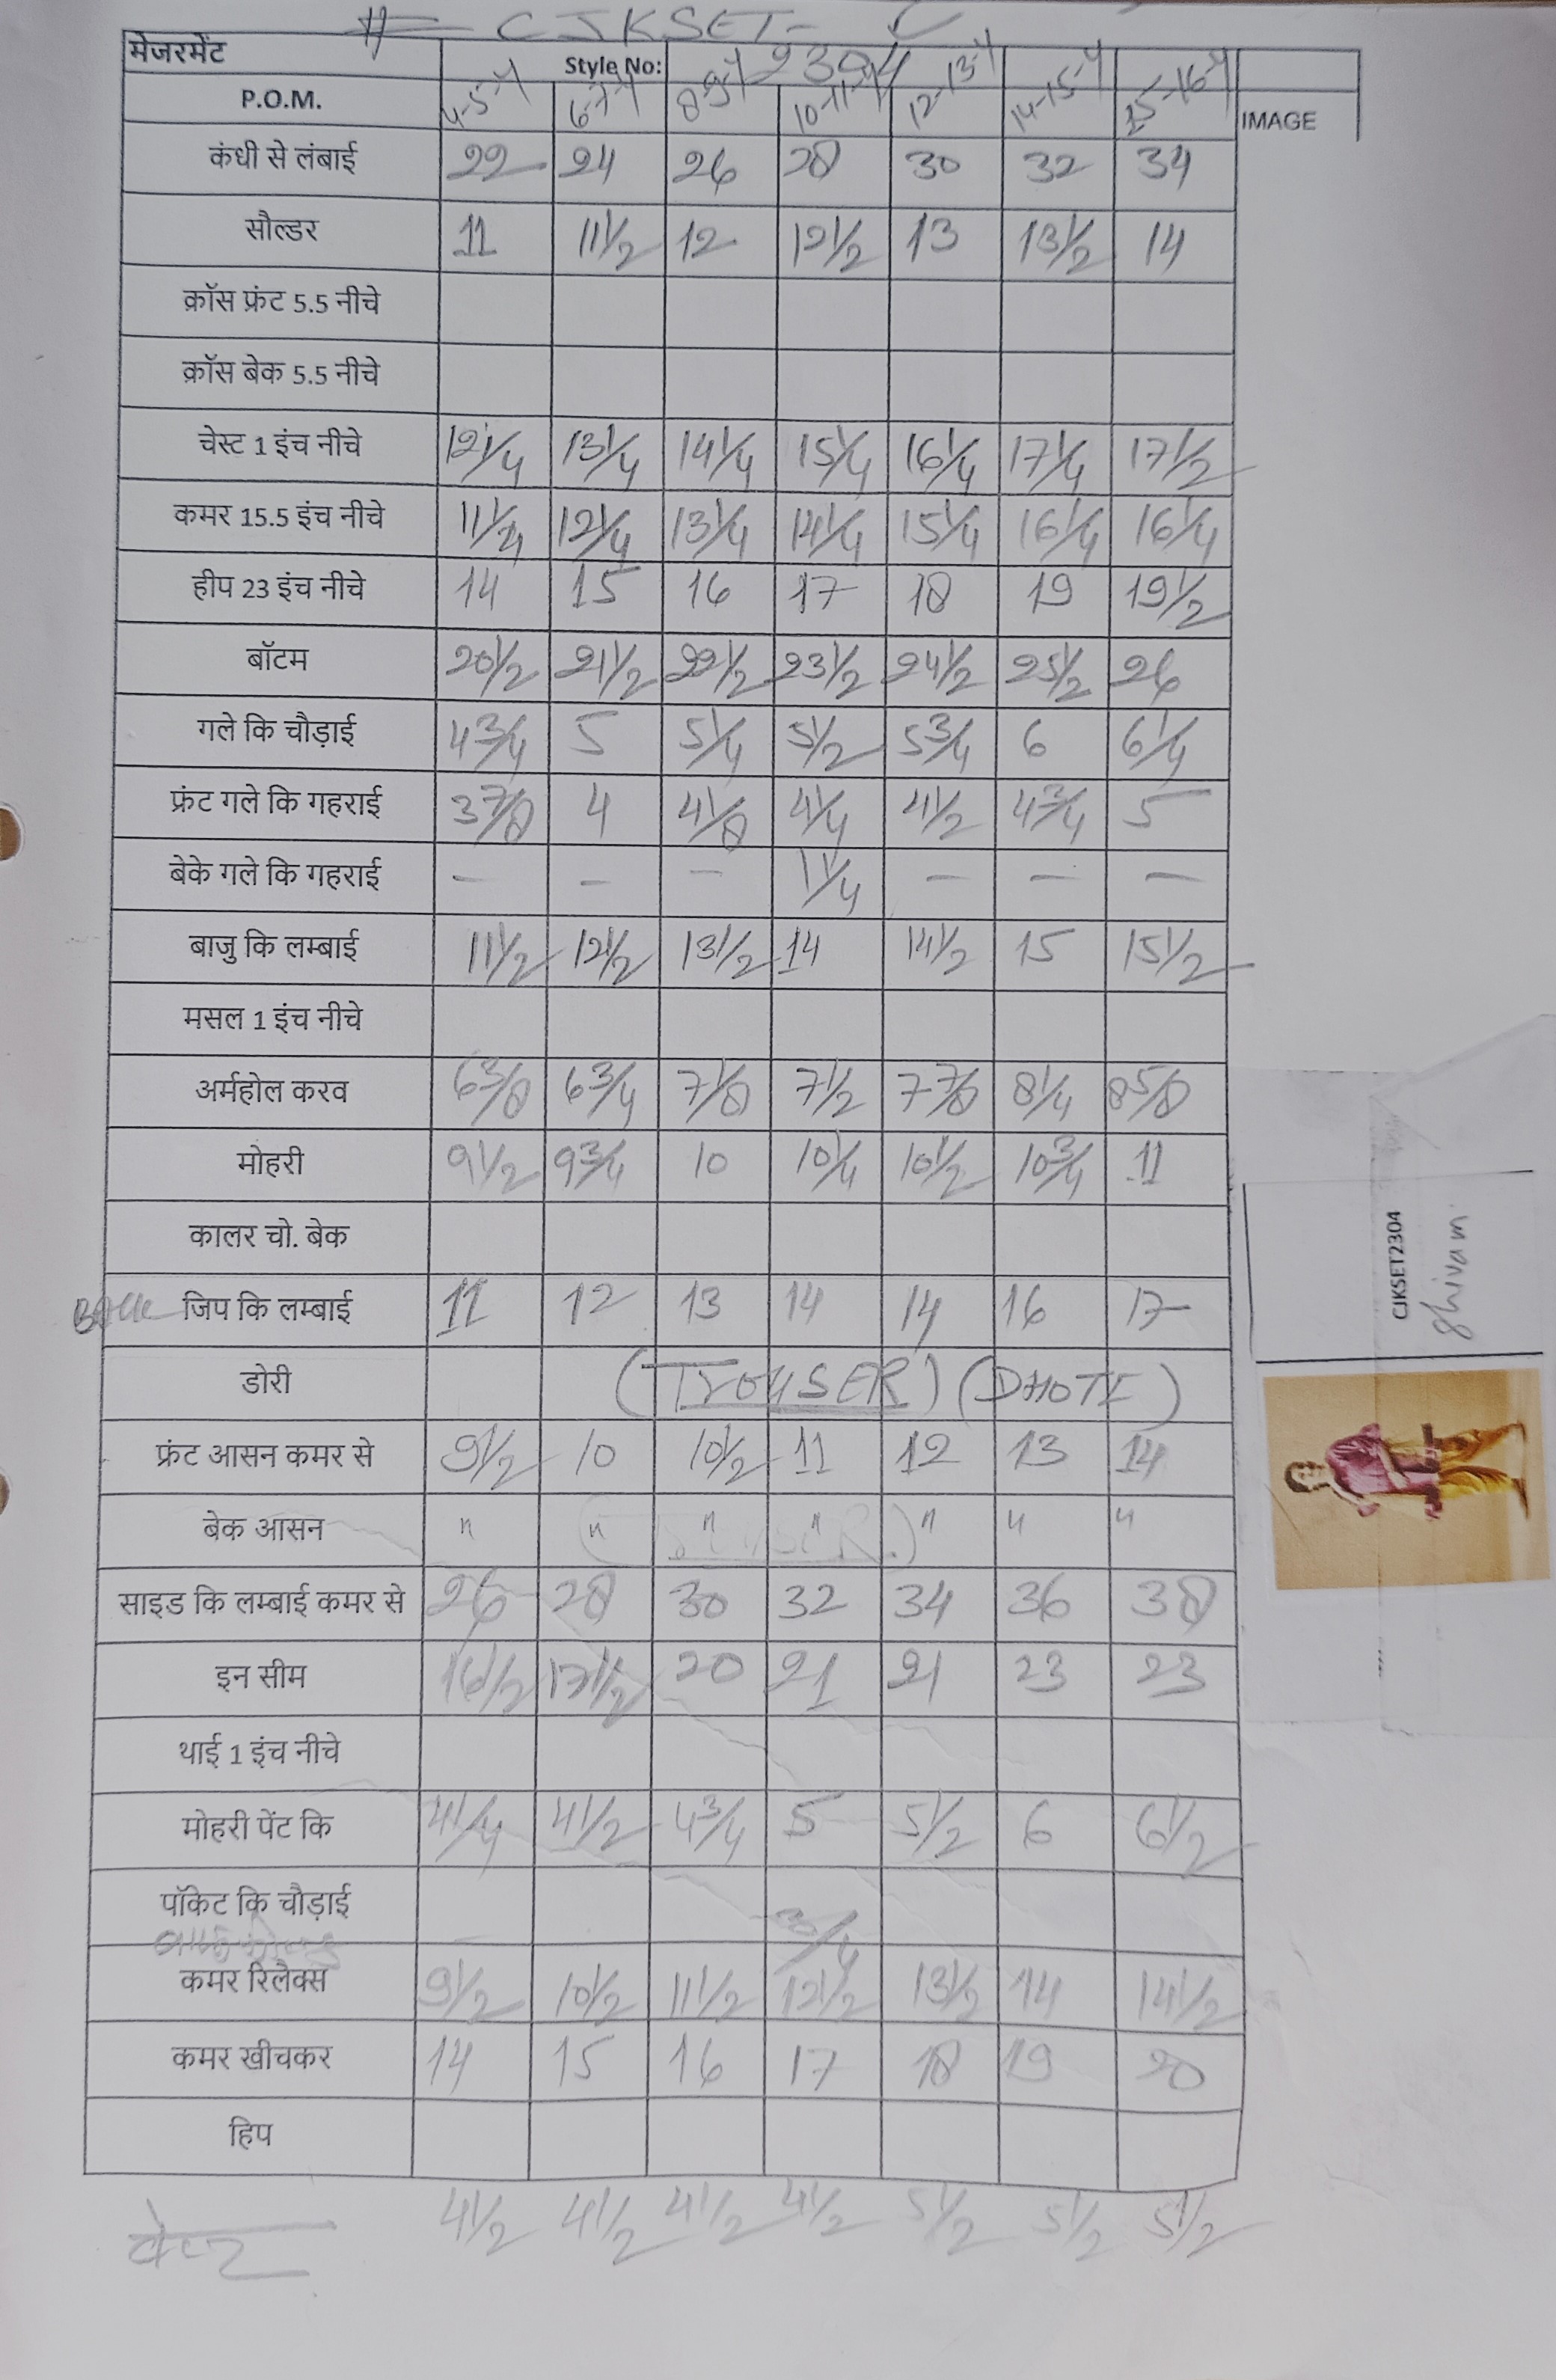 # CJKSET-
मेजरमेंट Style No: 2304
P.O.M. 4-5-Y 6-7-Y 8-9-Y 10-11-Y 12-13-Y 14-15-Y 15-16-Y IMAGE
कंधी से लंबाई 22 24 26 28 30 32 34
सौल्डर 11 11 1/2 12 12 1/2 13 13 1/2 14
क्रॉस फ्रंट 5.5 नीचे
क्रॉस बेक 5.5 नीचे
चेस्ट 1 इंच नीचे 12 1/4 13 1/4 14 1/4 15 1/4 16 1/4 17 1/4 17 1/2
कमर 15.5 इंच नीचे 11 1/4 12 1/4 13 1/4 14 1/4 15 1/4 16 1/4 16 1/4
हीप 23 इंच नीचे 14 15 16 17 18 19 19 1/2
बॉटम 20 1/2 21 1/2 22 1/2 23 1/2 24 1/2 25 1/2 26
गले कि चौड़ाई 4 3/4 5 5 1/4 5 1/2 5 3/4 6 6 1/4
फ्रंट गले कि गहराई 3 7/8 4 4 1/8 4 1/4 4 1/2 4 3/4 5
बेके गले कि गहराई – – – 1 1/4 – – –
बाजु कि लम्बाई 11 1/2 12 1/2 13 1/2 14 14 1/2 15 15 1/2
मसल 1 इंच नीचे
अर्महोल करव 6 3/8 6 3/4 7 1/8 7 1/2 7 7/8 8 1/4 8 5/8
मोहरी 9 1/2 9 3/4 10 10 1/4 10 1/2 10 3/4 11
कालर चो. बेक
जिप कि लम्बाई 11 12 13 14 14 16 17
डोरी (TROUSER) (DHOTI)
फ्रंट आसन कमर से 9 1/2 10 10 1/2 11 12 13 14
बेक आसन " " " " " " "
साइड कि लम्बाई कमर से 26 28 30 32 34 36 38
इन सीम 16 1/2 17 1/2 20 21 21 23 23
थाई 1 इंच नीचे
मोहरी पेंट कि 4 1/4 4 1/2 4 3/4 5 5 1/2 6 6 1/2
पॉकेट कि चौड़ाई 3/4
कमर रिलैक्स 9 1/2 10 1/2 11 1/2 12 1/2 13 1/2 14 14 1/2
कमर खीचकर 14 15 16 17 18 19 20
हिप
बेल्ट 4 1/2 4 1/2 4 1/2 4 1/2 5 1/2 5 1/2 5 1/2
CJKSET2304
Shivam